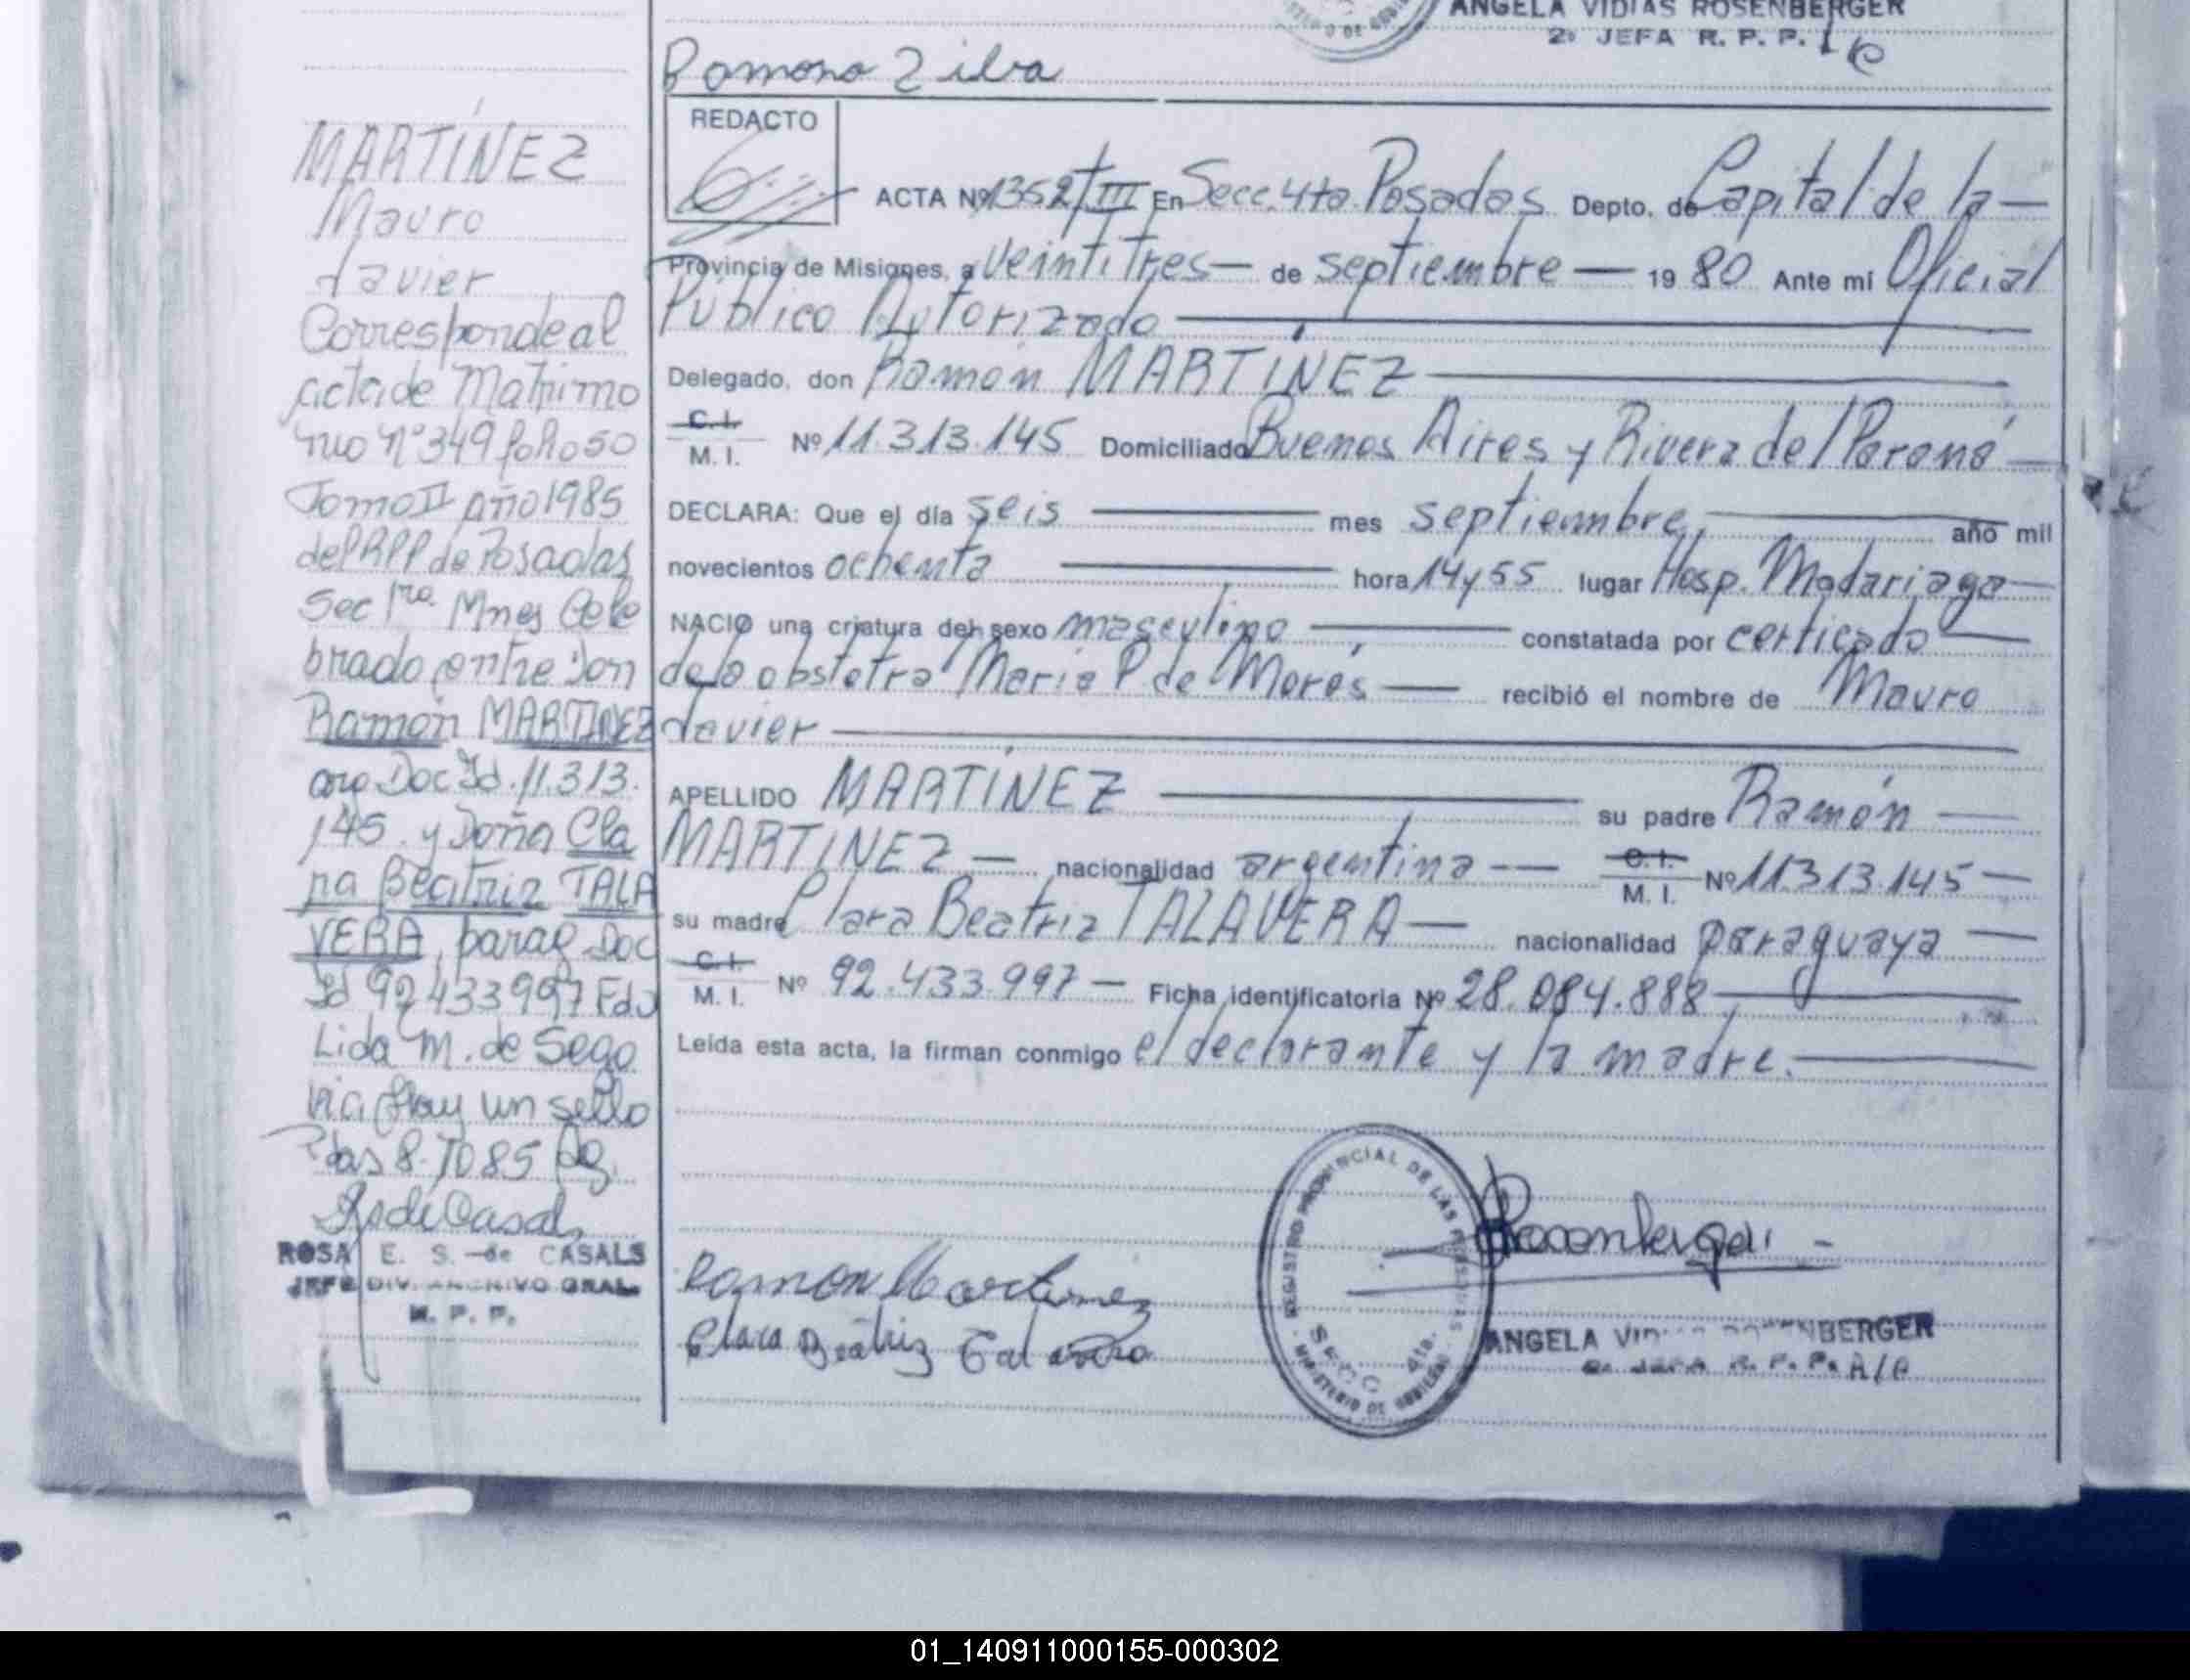 ANGELA VIDIAS ROSENBERGER
2ª JEFA R. P. P.
Ramona Zilva
REDACTO
ACTA Nº 1352/III En Secc. 4ta. Posadas Depto. de Capital de la
Provincia de Misiones, a veintitres de septiembre 19 80 Ante mi Oficial
Público Autorizado
Delegado, don Ramón MARTÍNEZ
C.I.
M. I. Nº 11.313.145 Domiciliado Buenos Aires y Rivera del Paraná
DECLARA: Que el día seis mes septiembre, año mil
novecientos ochenta hora 14 y 55 lugar Hosp. Madariaga
NACIO una criatura del sexo masculino constatada por certicado
de la obstetra María P de Morés recibió el nombre de Mauro
Javier
APELLIDO MARTÍNEZ su padre Ramón
MARTÍNEZ nacionalidad argentina C.I. M. I. Nº 11.313.145
su madre Clara Beatriz TALAVERA nacionalidad paraguaya
C.I.
M. I. Nº 92.433.997 Ficha identificatoria Nº 28.084.888
Leída esta acta, la firman conmigo el declarante y la madre.
Ramon Martinez
Clara Beatriz Talavera
REGISTRO PROVINCIAL DE LAS PERSONAS
SECC 4ta.
MINISTERIO DE GOBIERNO
Rosenberger
ANGELA VIDIAS ROSENBERGER
2ª JEFA R. P. P. A/C
MARTÍNEZ
Mauro
Javier
Corresponde al
acta de Matrimo
nio Nº 349 folio 50
Tomo II Año 1985
del RPP de Posadas
Sec 1ra. Mnes Cele
brado entre Don
Ramón MARTINEZ
arg. Doc Id. 11.313.
145. y Doña Cla
ra Beatriz TALA
VERA, parag Doc
Id 92433997 Fdo
Lida M. de Sego
via Hay un sello
Pdas 8-10 85
ROSA E. S. de CASALS
JEFE DIV. ARCHIVO GRAL.
R. P. P.
01_140911000155-000302